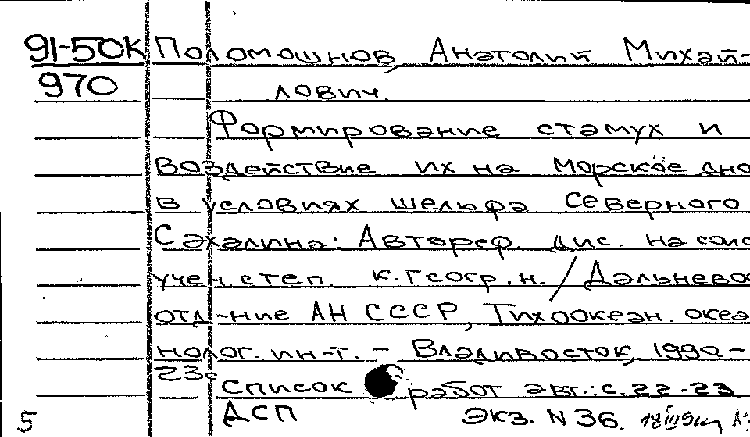 91-50К Поломошнов, Анатолий Михай-
970 лович.
Формирование стамух и
воздействие их на морское дно
в условиях шельфа Северного
Сахалина: Автореф. дис. на соис
учен. степ. к.геогр.н. / Дальневос
отд-ние АН СССР, Тихоокеан. океа
нолог. ин-т. - Владивосток, 1990 -
23с
Список работ авт.: с.22-23
5 ДСП экз. N 36.